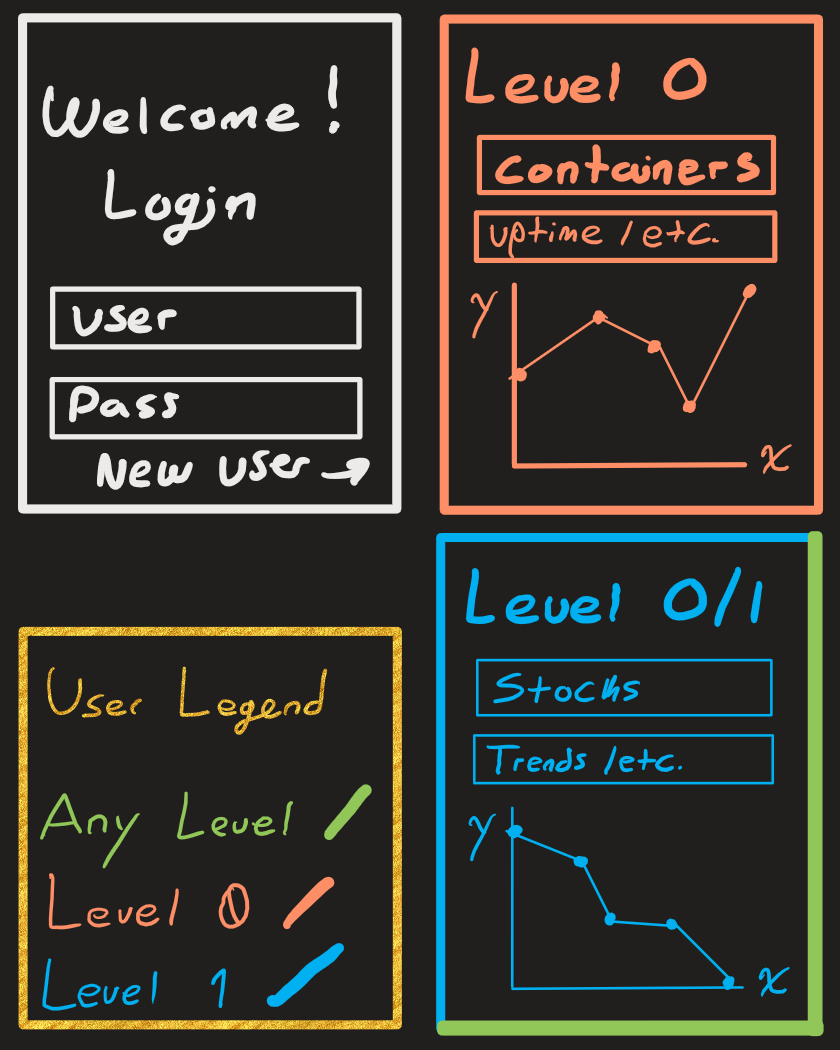 Welcome!
Login
user
Pass
New user →
Level 0
Containers
uptime / etc.
y
x
User Legend
Any Level
Level 0
Level 1
Level 0/1
Stocks
Trends /etc.
y
x